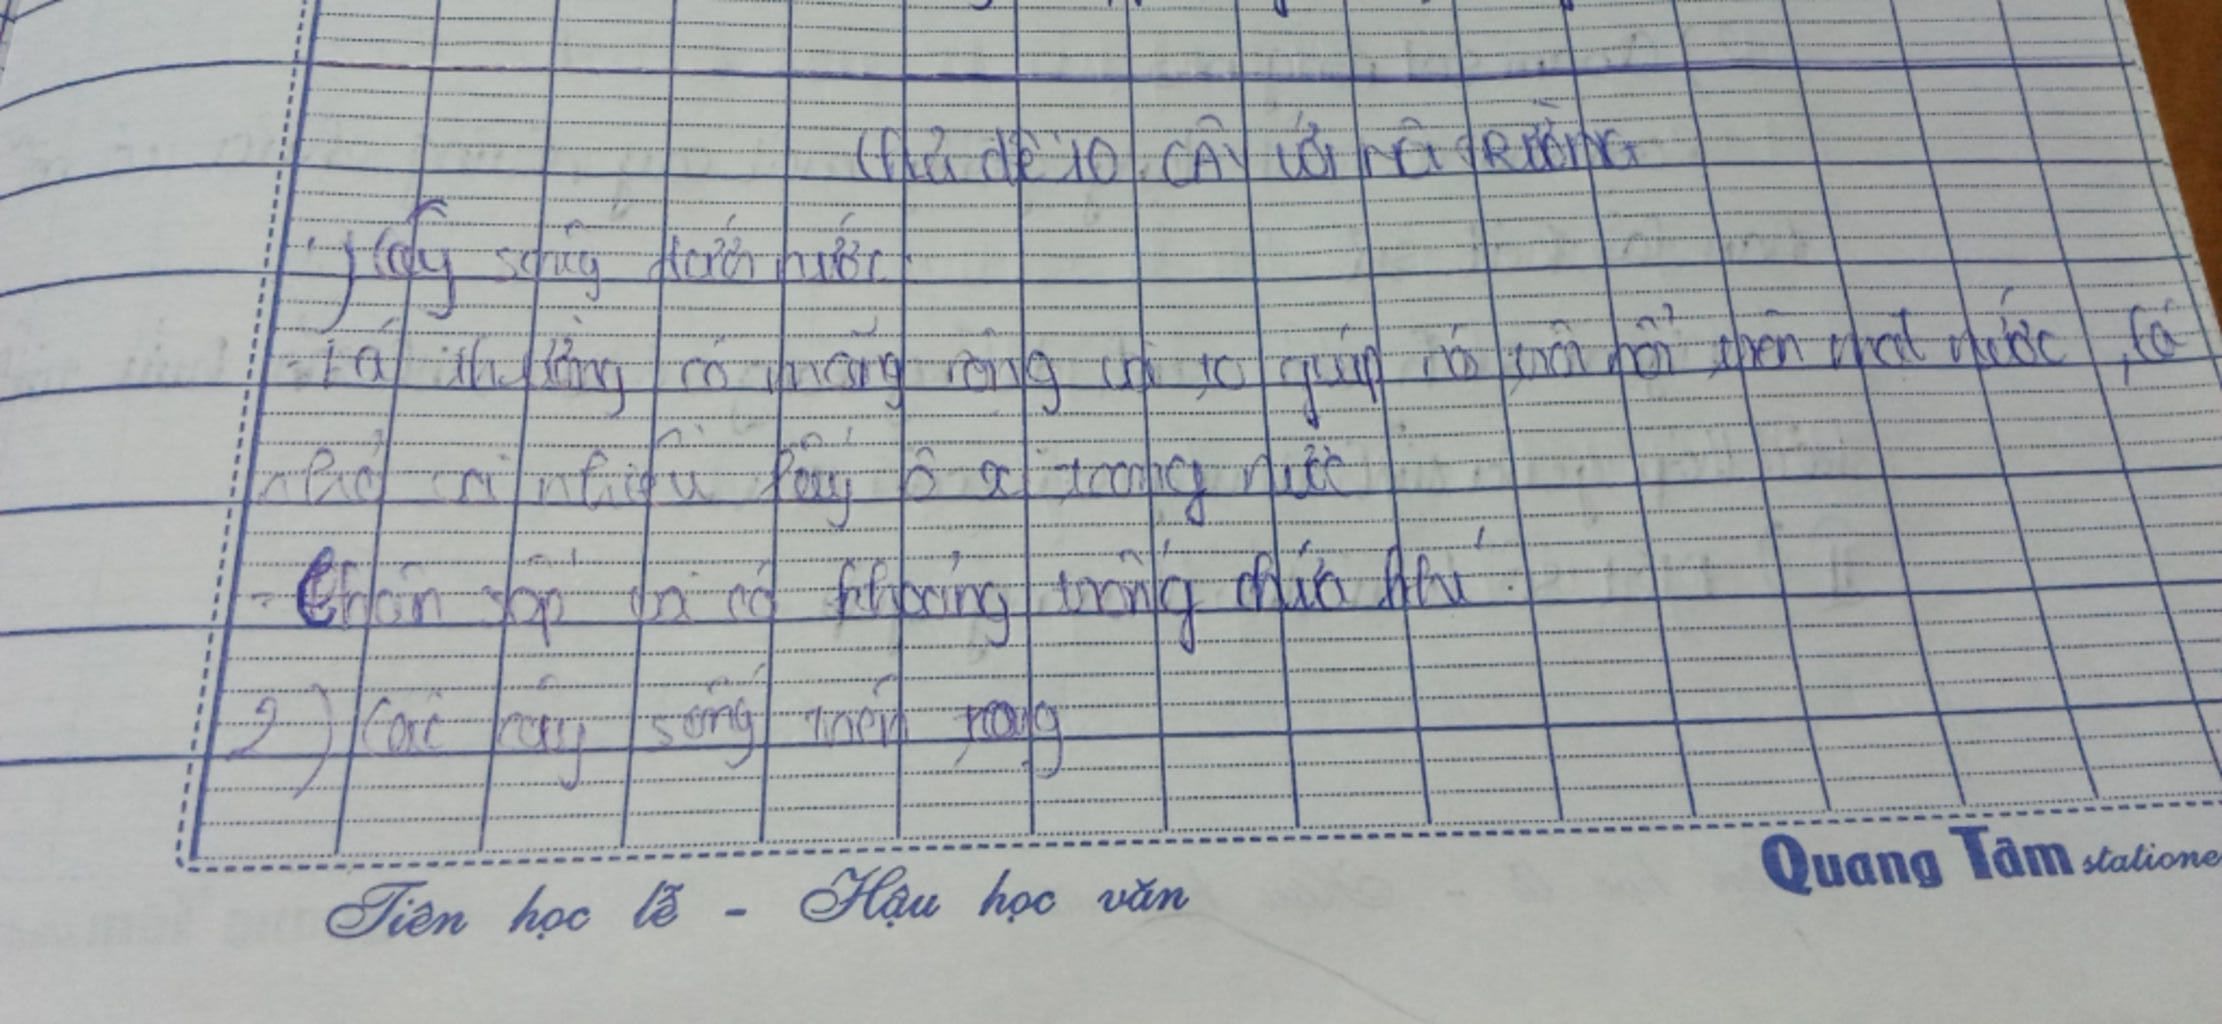 Chủ đề 10 CÂY VỚI MÔI TRƯỜNG
1) Cây sống dưới nước.
- Lá thường có mảng rộng và to giúp nó trôi nổi trên mặt nước, lá
nhỏ và nhiều lấy ô xi trong nước
- Thân xốp và có khoảng trống chứa khí.
2) Các cây sống trên
Tiên học lễ - Hậu học văn
Quang Tâm statione